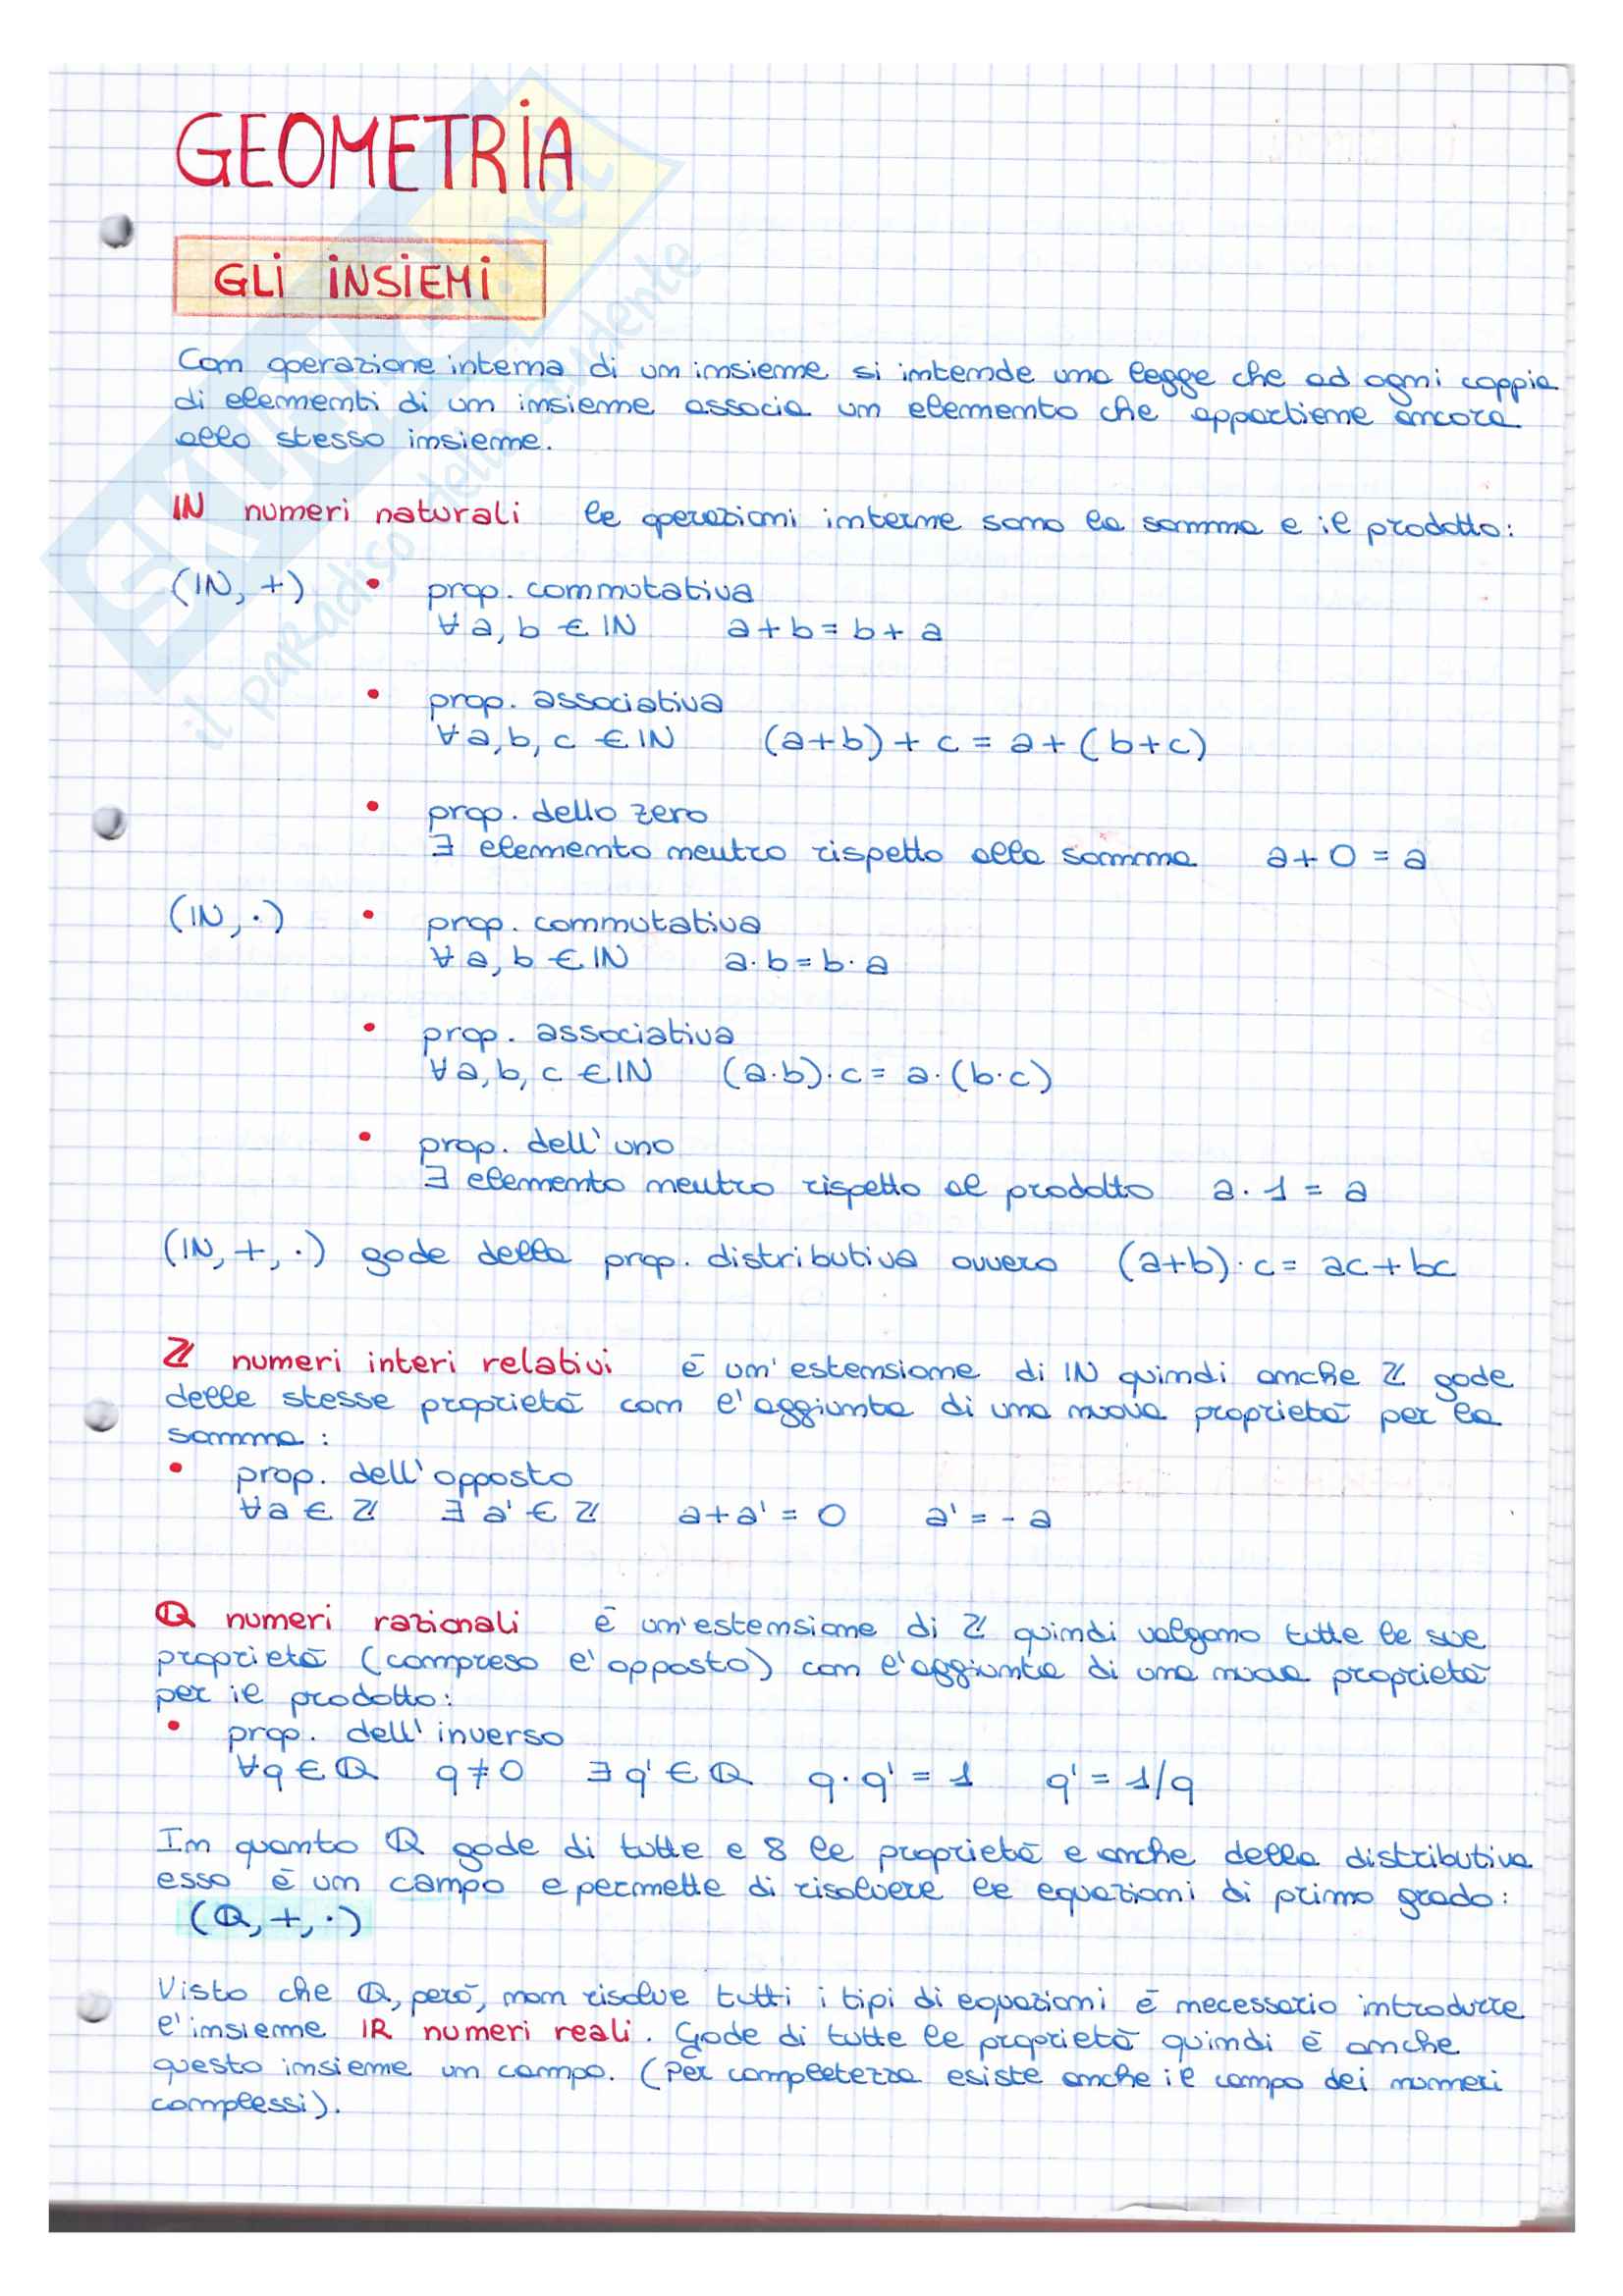 GEOMETRIA
GLI INSIEMI
Con operazione interna di un insieme si intende una legge che ad ogni coppia
di elementi di un insieme associa un elemento che appartiene ancora
allo stesso insieme.
ℕ numeri naturali le operazioni interne sono la somma e il prodotto:
(ℕ, +) • prop. commutativa
∀ a, b ∈ ℕ a + b = b + a
• prop. associativa
∀ a, b, c ∈ ℕ (a+b) + c = a + (b+c)
• prop. dello zero
∃ elemento neutro rispetto alla somma a + 0 = a
(ℕ, ·) • prop. commutativa
∀ a, b ∈ ℕ a · b = b · a
• prop. associativa
∀ a, b, c ∈ ℕ (a·b)·c = a·(b·c)
• prop. dell'uno
∃ elemento neutro rispetto al prodotto a · 1 = a
(ℕ, +, ·) gode della prop. distributiva ovvero (a+b)·c = ac + bc
ℤ numeri interi relativi è un'estensione di ℕ quindi anche ℤ gode
delle stesse proprietà con l'aggiunta di una nuova proprietà per la
somma:
• prop. dell'opposto
∀ a ∈ ℤ ∃ a' ∈ ℤ a + a' = 0 a' = - a
ℚ numeri razionali è un'estensione di ℤ quindi valgono tutte le sue
proprietà (compreso l'opposto) con l'aggiunta di una nuova proprietà
per il prodotto:
• prop. dell'inverso
∀ q ∈ ℚ q ≠ 0 ∃ q' ∈ ℚ q · q' = 1 q' = 1/q
In quanto ℚ gode di tutte e 8 le proprietà e anche della distributiva
esso è un campo e permette di risolvere le equazioni di primo grado:
(ℚ, +, ·)
Visto che ℚ, però, non risolve tutti i tipi di equazioni è necessario introdurre
l'insieme ℝ numeri reali. Gode di tutte le proprietà quindi è anche
questo insieme un campo. (Per completezza esiste anche il campo dei numeri
complessi).
SKUOLA.net
il paradiso dello studente